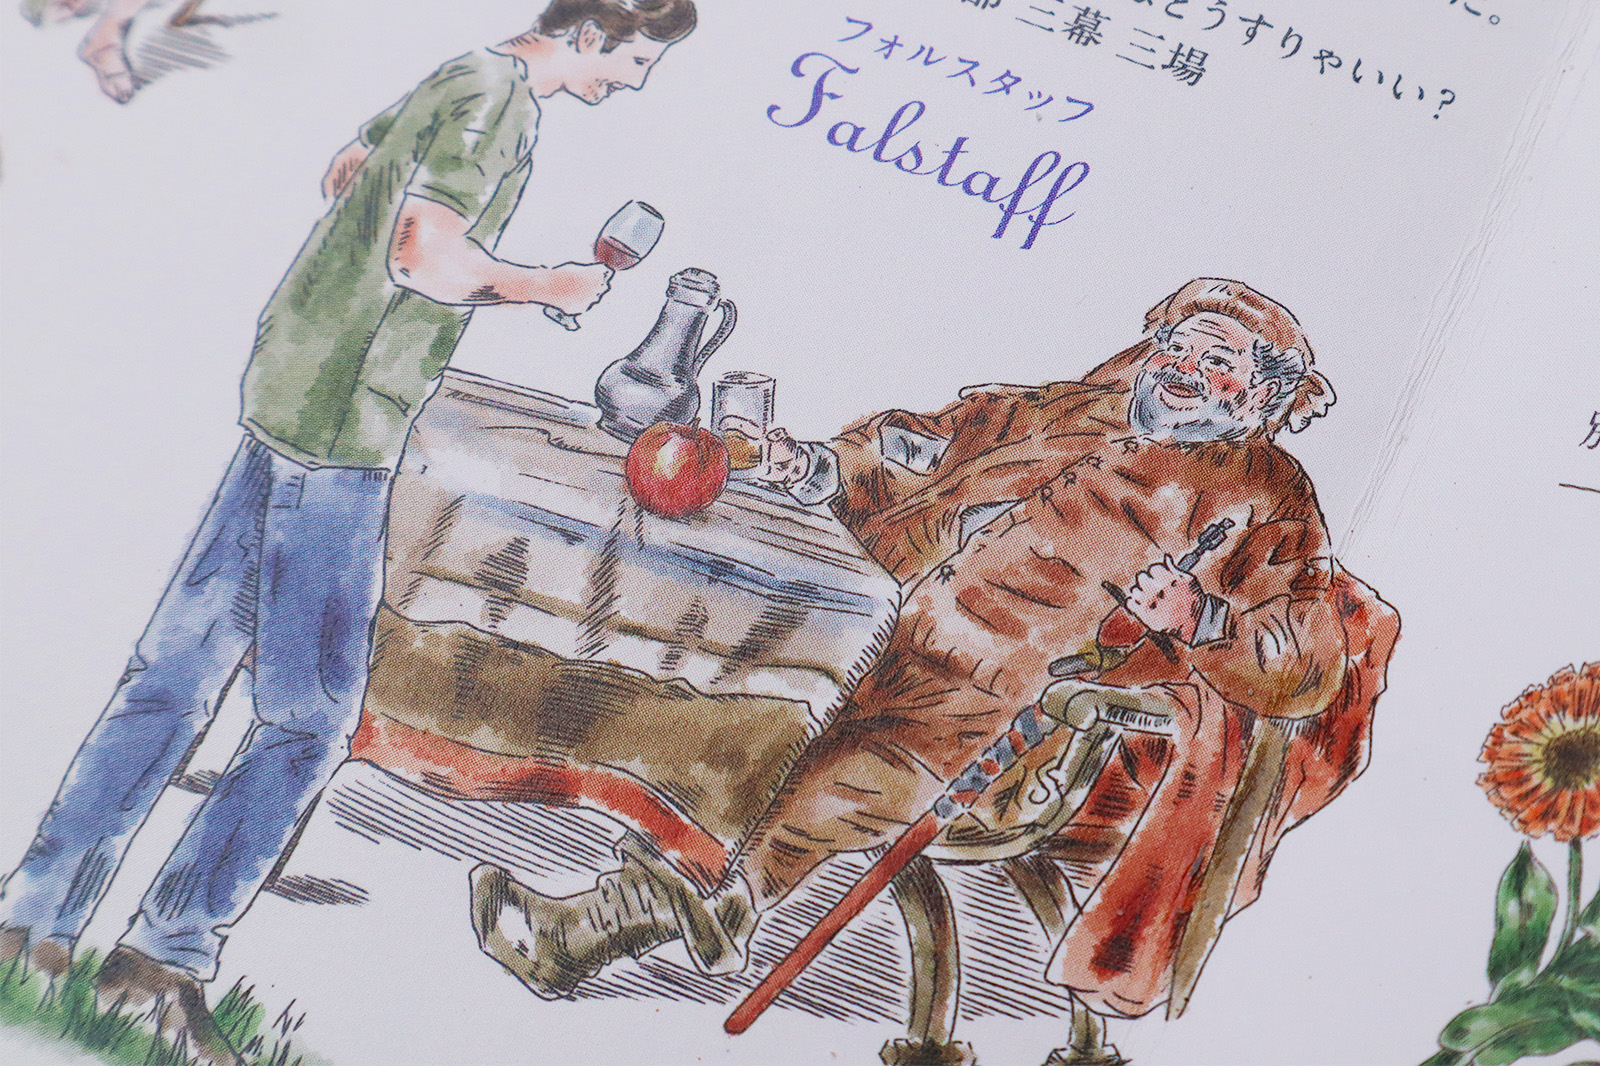 た。
どうすりやいい?
部 三幕 三場
フォルスタッフ
Falstaff